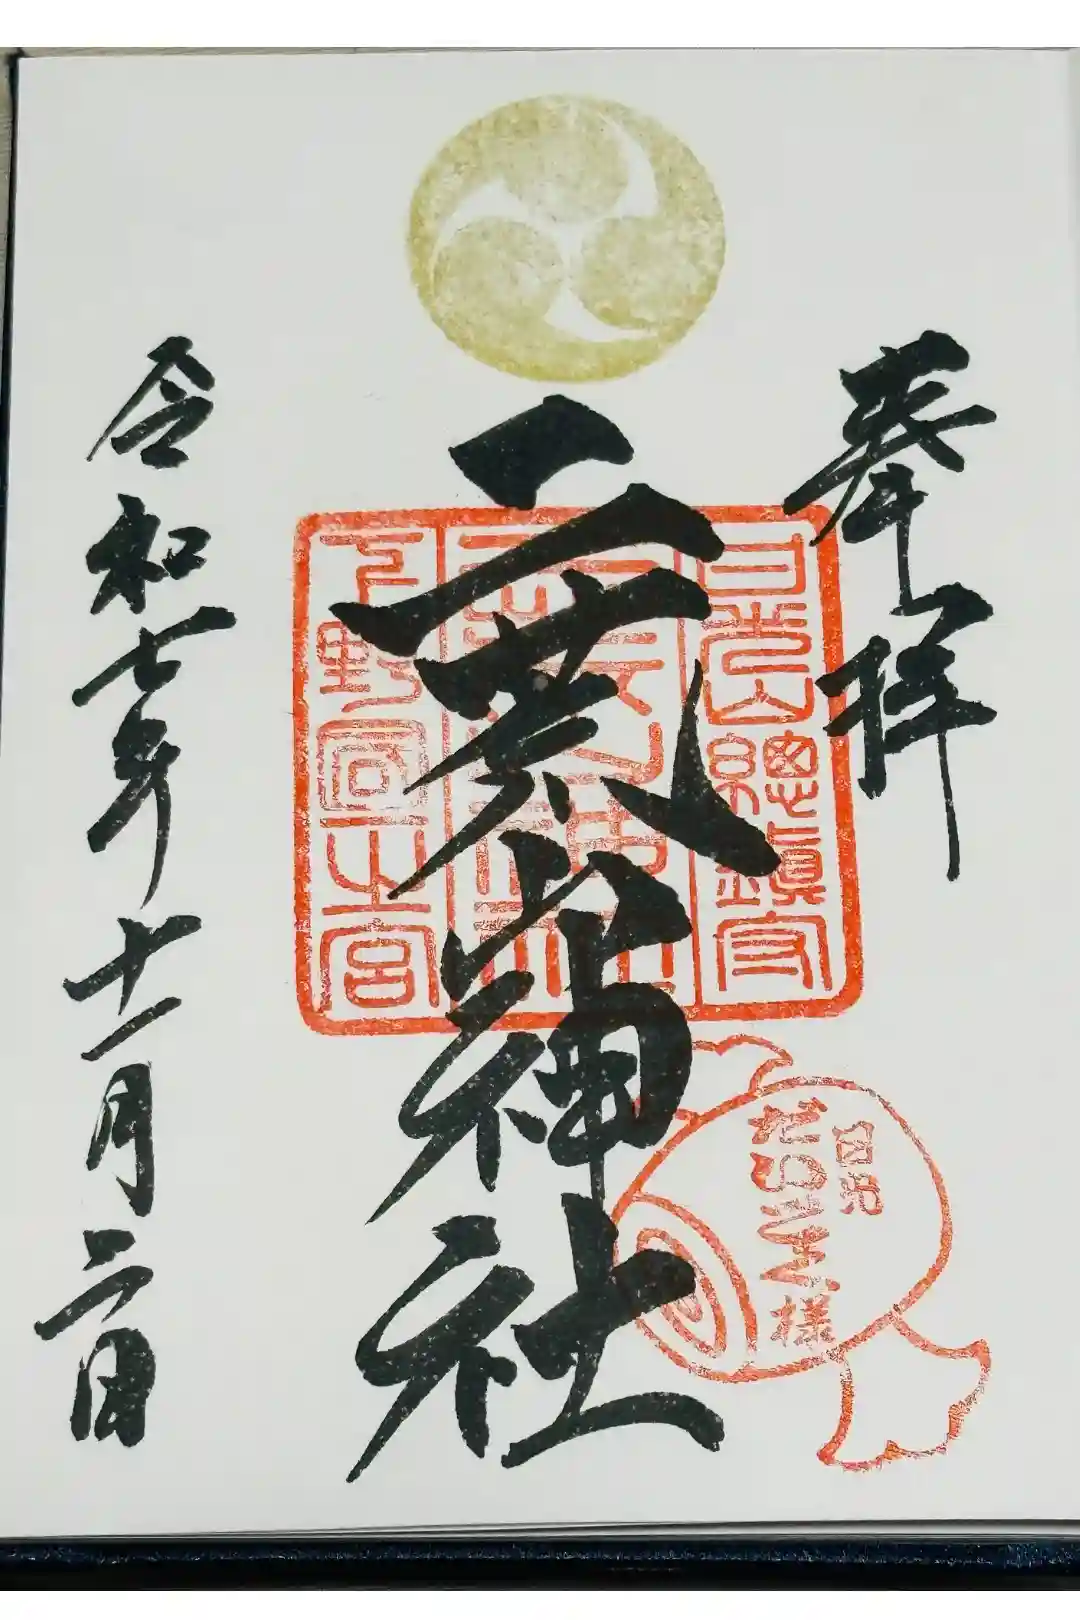 奉拝
日光山總鎮守
二荒山神社
下野國一之宮
二荒山神社
日光
だいこく様
令和七年十一月二日